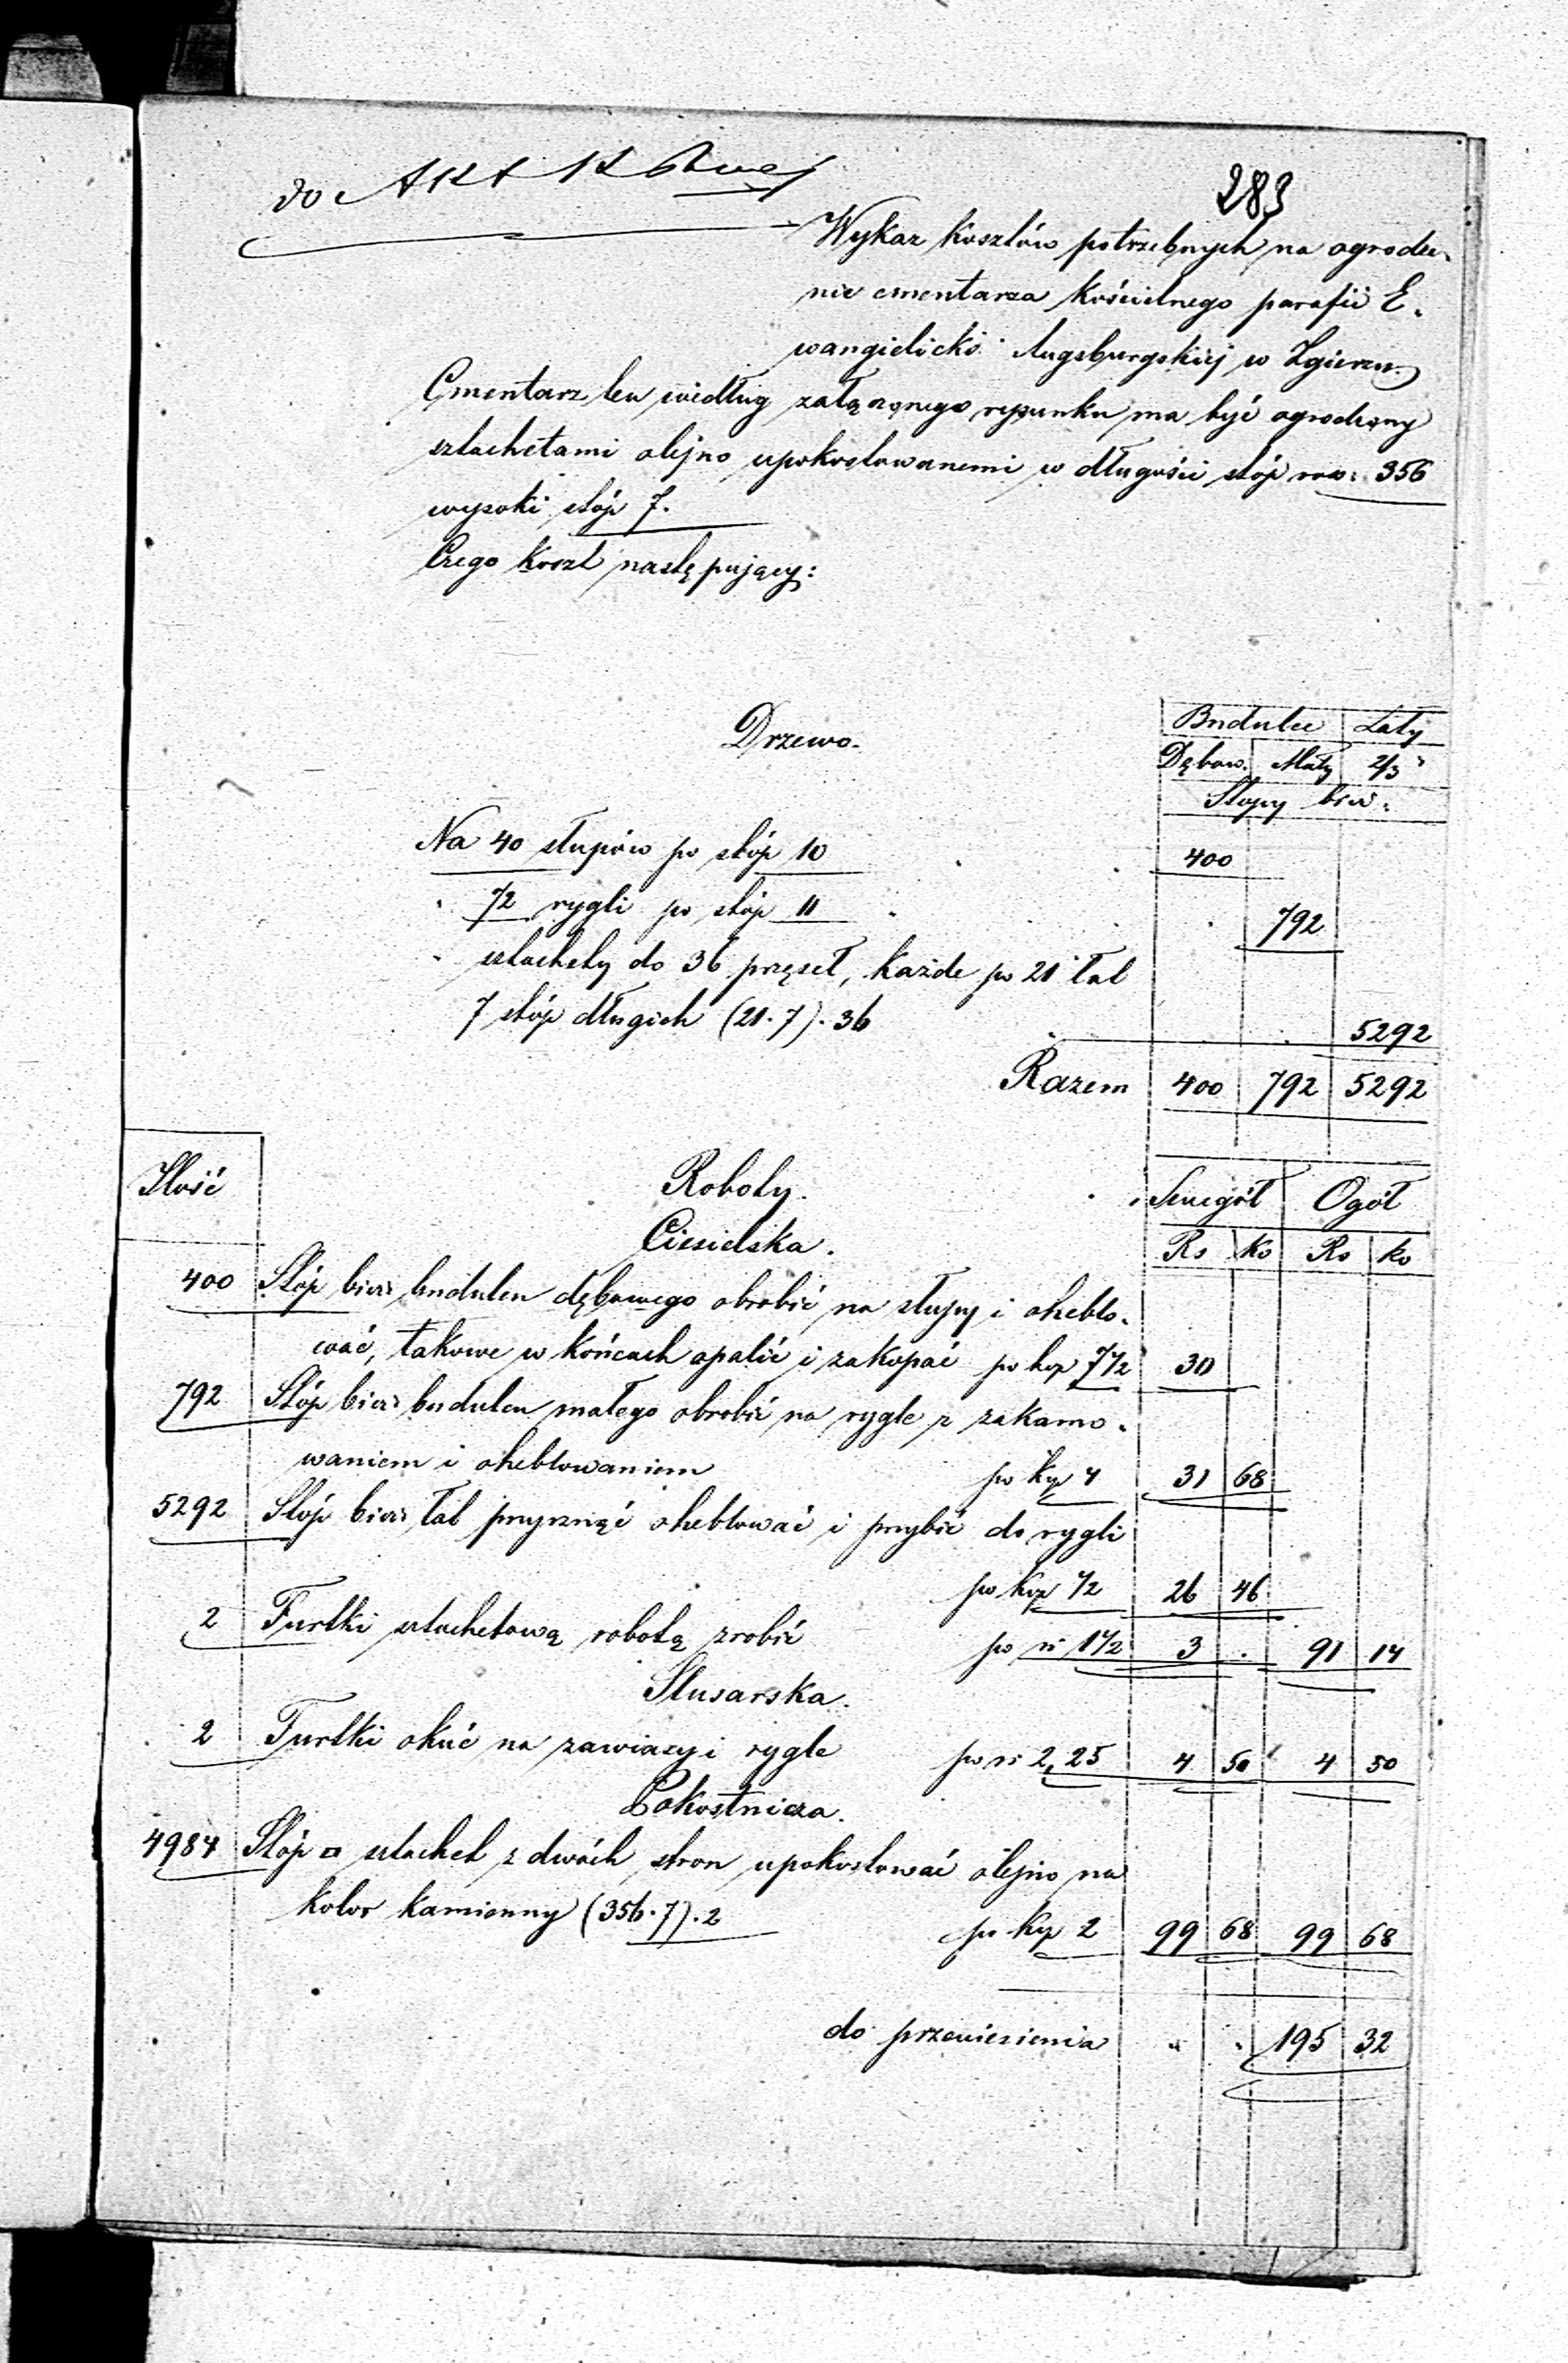 do Akt
283
Wykaz kosztów potrzebnych na ogrodze-
nie cmentarza kościelnego parafii E.
wangielicko Augsburgskiej w Zgierzu.
Cmentarz ten według załączonego rysunku ma być ogrodzony
sztachetami olejno upokostowanemi w długości stóp 356
wysoki stóp 7.
Czego koszt następujący:
Drzewo.
Budulec Łaty
Dębow. Mały 2/3"
Stopy bież.
Na 40 słupów po stóp 10 400
" 72 rygli po stóp 11 792
" sztachety do 36 przęseł, każde po 21 łat
7 stóp długich (21.7).36 5292
Razem 400 792 5292
Ilość Roboty. Szczegół Ogół
Ciesielska. Rs ko Rs ko
400 Stóp bież: budulcu dębowego obrobić na słupy i oheblo-
wać, takowe w końcach opalić i zakopać po kop 7 1/2 30
792 Stóp bież: budulcu małego obrobić na rygle z zakamo-
waniem i oheblowaniem po kop 4 31 68
5292 Stóp bież: łat przyrznąć oheblować i przybić do rygli
po kop 1/2 26 46
2 Furtki sztachetową robotą zrobić po rs 1 1/2 3 . 91 14
Slusarska.
2 Furtki okuć na zawiasy i rygle po rs 2,25 4 50 4 50
Pokostnicza.
4984 Stóp □ sztachet z dwóch stron upokostować olejno na
kolor kamienny (356.7).2 po kop 2 99 68 99 68
do przeniesienia " " 195 32